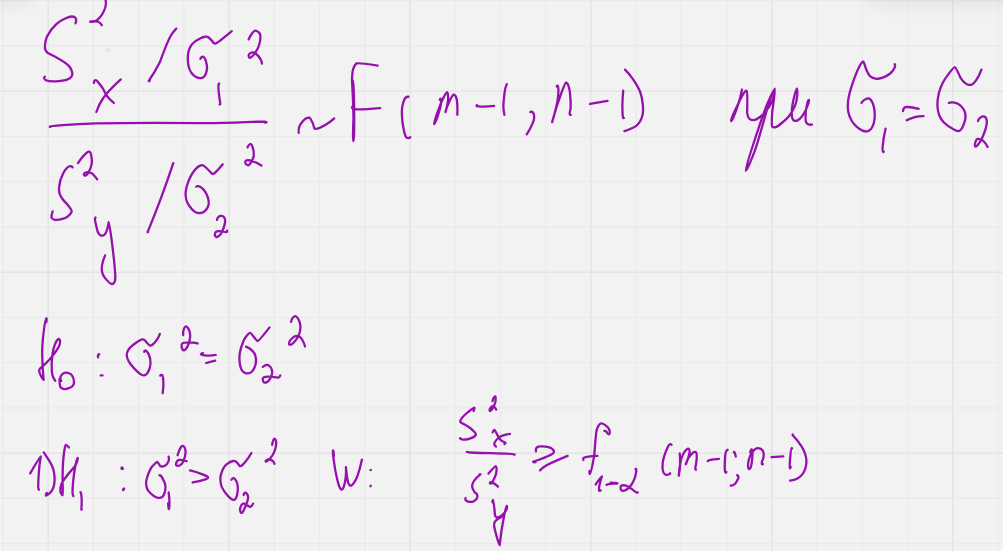 S²ₓ/σ₁² / S²ᵧ/σ₂² ~ F(m-1, n-1) при σ₁ = σ₂
H₀: σ₁² = σ₂²
1) H₁: σ₁² > σ₂² W: S²ₓ / S²ᵧ ≥ f₁₋α (m-1; n-1)